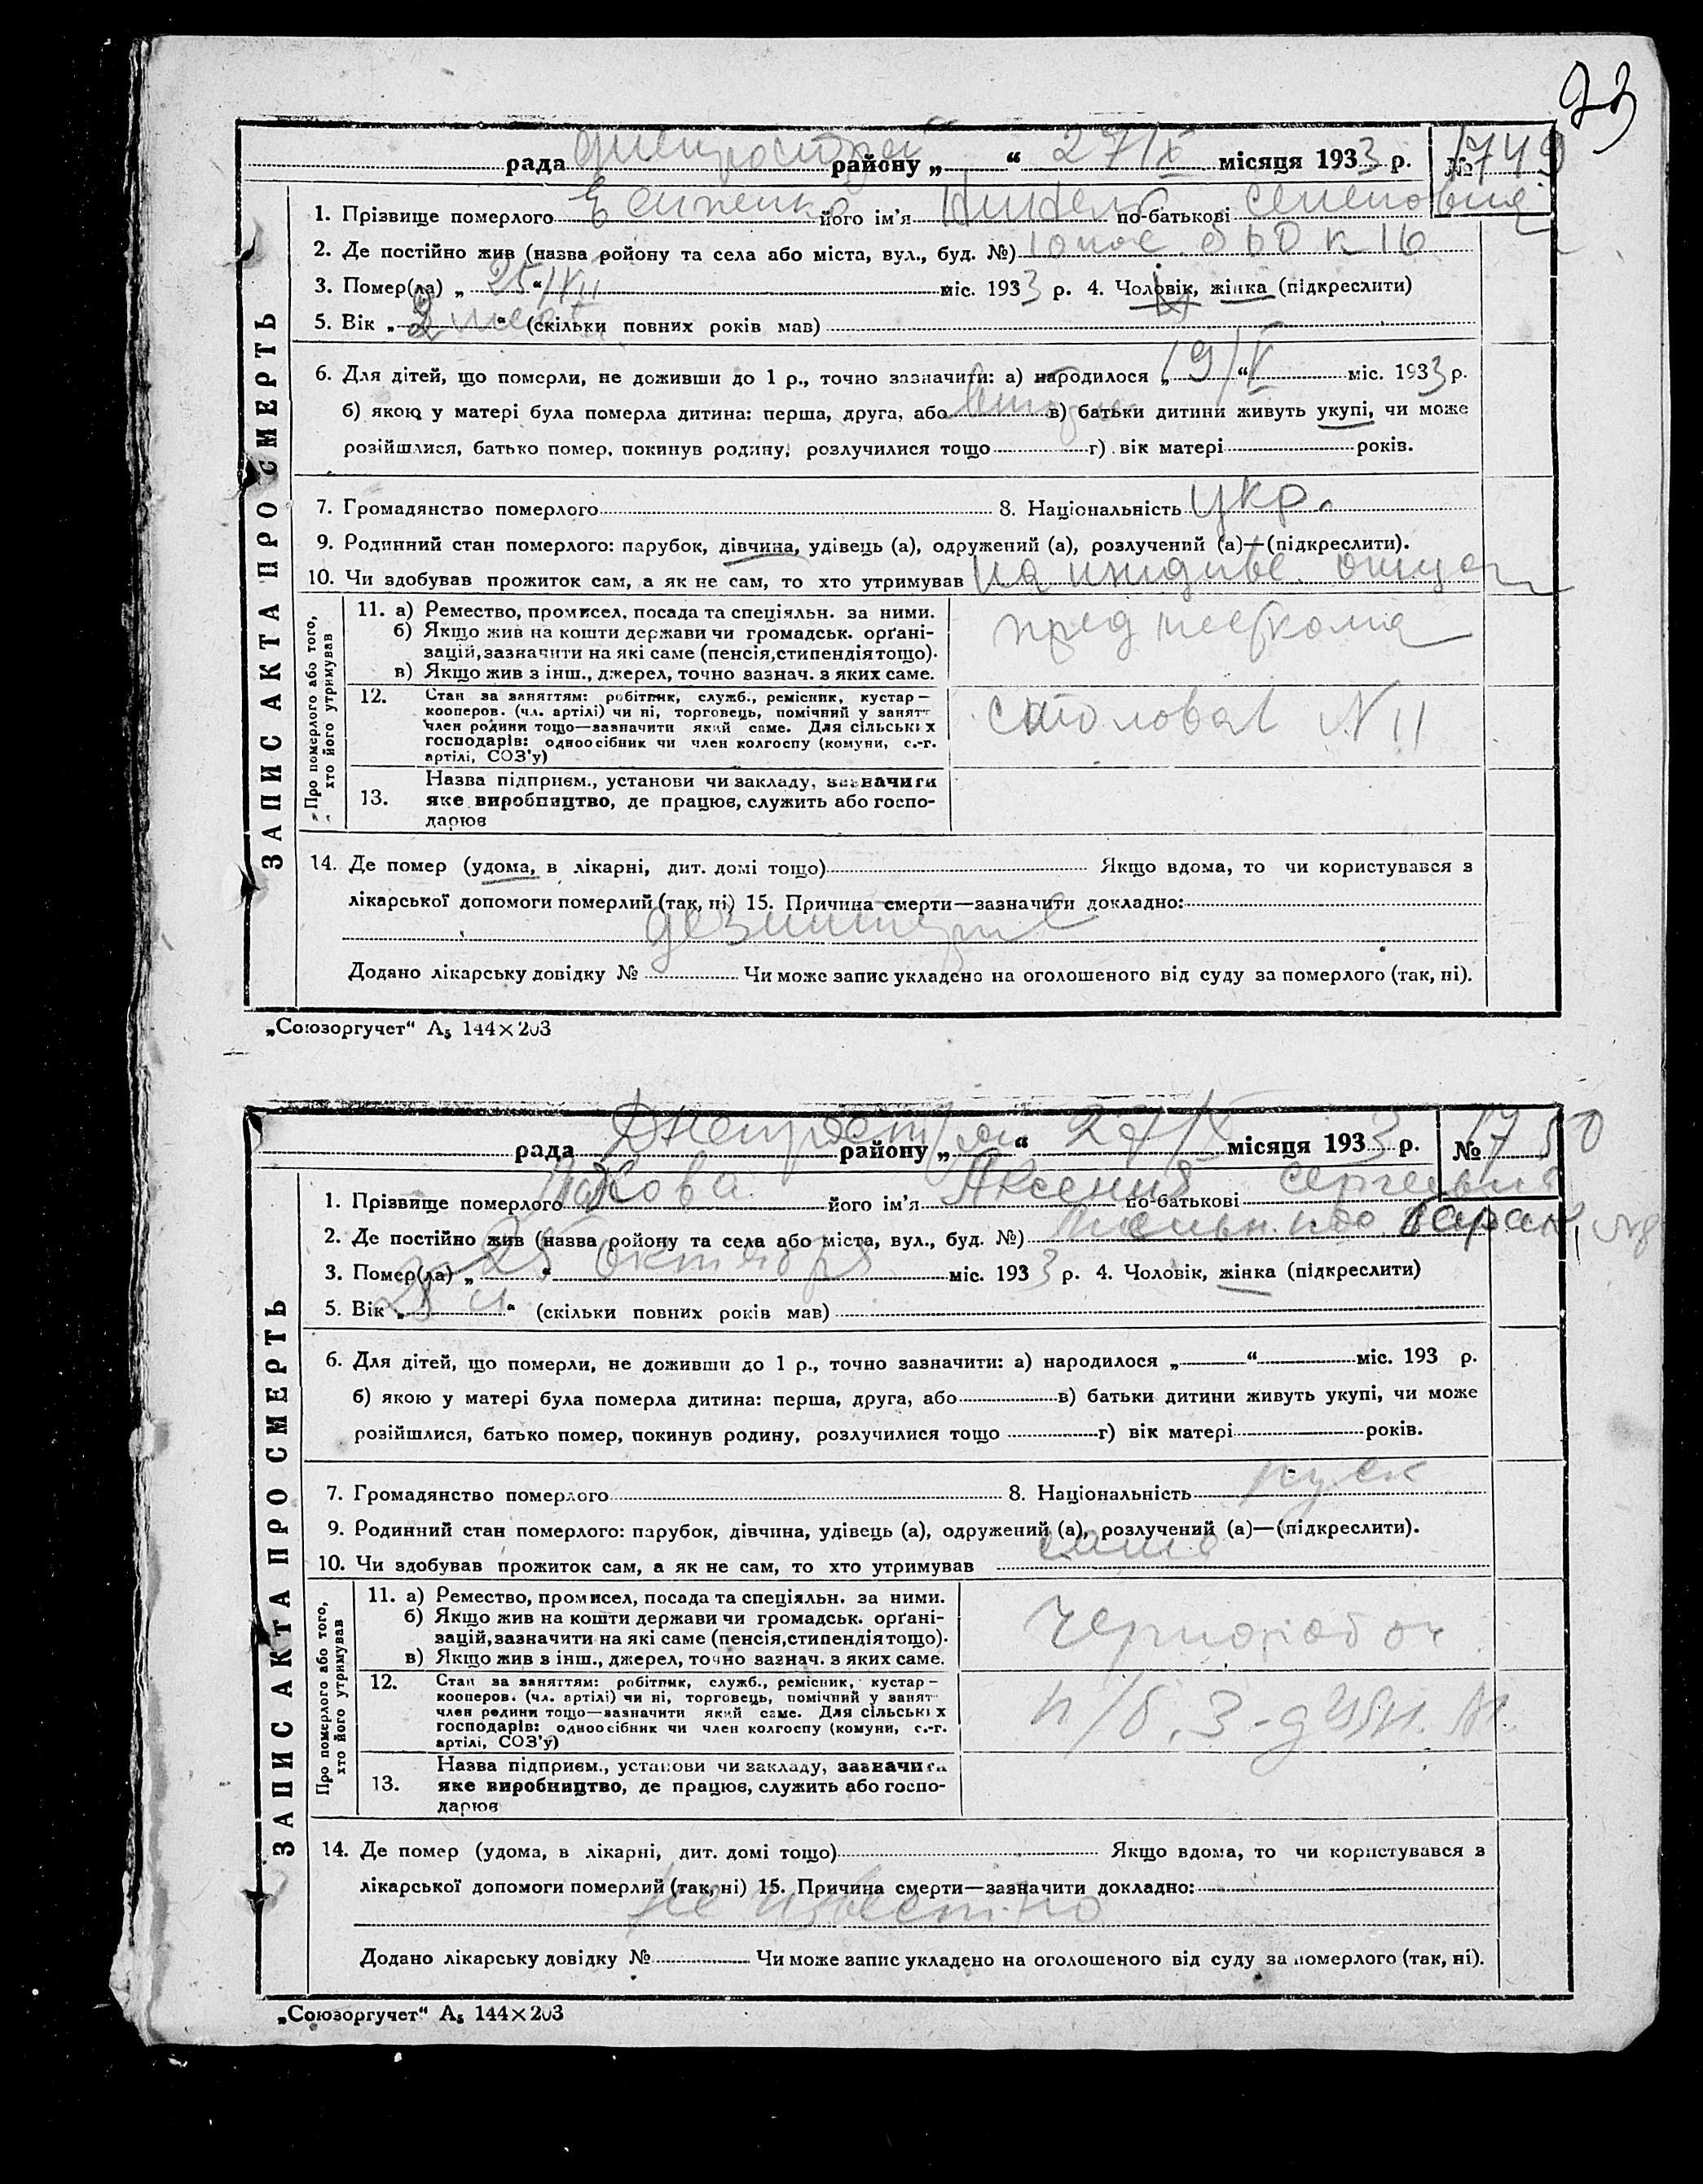 73
рада Днепрострой району „ “ 27/IX місяця 1933 р. № 1749
1. Прізвище померлого Есипенко його ім'я Нинель по-батькові Семеновна
2. Де постійно жив (назва ройону та села або міста, вул., буд. №) 10 пос. д 60 к 16
3. Помер(ла) „ 25 “ міс. 1933 р. 4. Чоловік, жінка (підкреслити)
5. Вік „ “ (скільки повних років мав)
6. Для дітей, що померли, не доживши до 1 р., точно зазначити: а) народилося „ 19 “ міс. 1933 р.
б) якою у матері була померла дитина: перша, друга, або в) батьки дитини живуть укупі, чи може
розійшлися, батько помер, покинув родину, розлучилися тощо г) вік матері років.
7. Громадянство померлого 8. Національність укр.
9. Родинний стан померлого: парубок, дівчина, удівець (а), одружений (а), розлучений (а)—(підкреслити).
10. Чи здобував прожиток сам, а як не сам, то хто утримував на иждиве. отца
ЗАПИС АКТА ПРО СМЕРТЬ
Про померлого або того,
хто його утримував
11. а) Ремество, промисел, посада та спеціяльн. за ними.
б) Якщо жив на кошти держави чи громадськ. орґані-
зацій, зазначити на які саме (пенсія, стипендія тощо).
в) Якщо жив з інш., джерел, точно зазнач. з яких саме.
пред месткома
12. Стан за заняттям: робітник, служб., ремісник, кустар—
кооперов. (чл. артілі) чи ні, торговець, помічний у занятт
член родини тощо—зазначити який саме. Для сільських
господарів: одноосібник чи член колгоспу (комуни, с.-г.
артілі, СОЗ'у)
столовая N 11
Назва підприєм., установи чи закладу, зазначити
13. яке виробництво, де працює, служить або госпо-
дарює
14. Де помер (удома, в лікарні, дит. домі тощо) Якщо вдома, то чи користувався з
лікарської допомоги померлий (так, ні) 15. Причина смерти—зазначити докладно:
дезинтерия
Додано лікарську довідку № Чи може запис укладено на оголошеного від суду за померлого (так, ні).
„Союзоргучет“ А5 144×203
рада Днепрострой району „ “ 27/IX місяця 1933 р. № 1750
1. Прізвище померлого його ім'я Аксения по-батькові Сергеевна
2. Де постійно жив (назва ройону та села або міста, вул., буд. №) пос. барак
3. Помер(ла) „ 25 “ октября міс. 1933 р. 4. Чоловік, жінка (підкреслити)
5. Вік „ 28 л “ (скільки повних років мав)
6. Для дітей, що померли, не доживши до 1 р., точно зазначити: а) народилося „ “ міс. 193 р.
б) якою у матері була померла дитина: перша, друга, або в) батьки дитини живуть укупі, чи може
розійшлися, батько помер, покинув родину, розлучилися тощо г) вік матері років.
7. Громадянство померлого 8. Національність русск
9. Родинний стан померлого: парубок, дівчина, удівець (а), одружений (а), розлучений (а)—(підкреслити).
10. Чи здобував прожиток сам, а як не сам, то хто утримував сама
ЗАПИС АКТА ПРО СМЕРТЬ
Про померлого або того,
хто його утримував
11. а) Ремество, промисел, посада та спеціяльн. за ними.
б) Якщо жив на кошти держави чи громадськ. орґані-
зацій, зазначити на які саме (пенсія, стипендія тощо).
в) Якщо жив з інш., джерел, точно зазнач. з яких саме.
чернорабоч.
12. Стан за заняттям: робітник, служб., ремісник, кустар—
кооперов. (чл. артілі) чи ні, торговець, помічний у занят
член родини тощо—зазначити який саме. Для сільських
господарів: одноосібник чи член колгоспу (комуни, с.-г.
артілі, СОЗ'у)
Назва підприєм., установи чи закладу, зазначити
13. яке виробництво, де працює, служить або госпо-
дарює
14. Де помер (удома, в лікарні, дит. домі тощо) Якщо вдома, то чи користувався з
лікарської допомоги померлий (так, ні) 15. Причина смерти—зазначити докладно:
не известно
Додано лікарську довідку № Чи може запис укладено на оголошеного від суду за померлого (так, ні).
„Союзоргучет“ А5 144×203